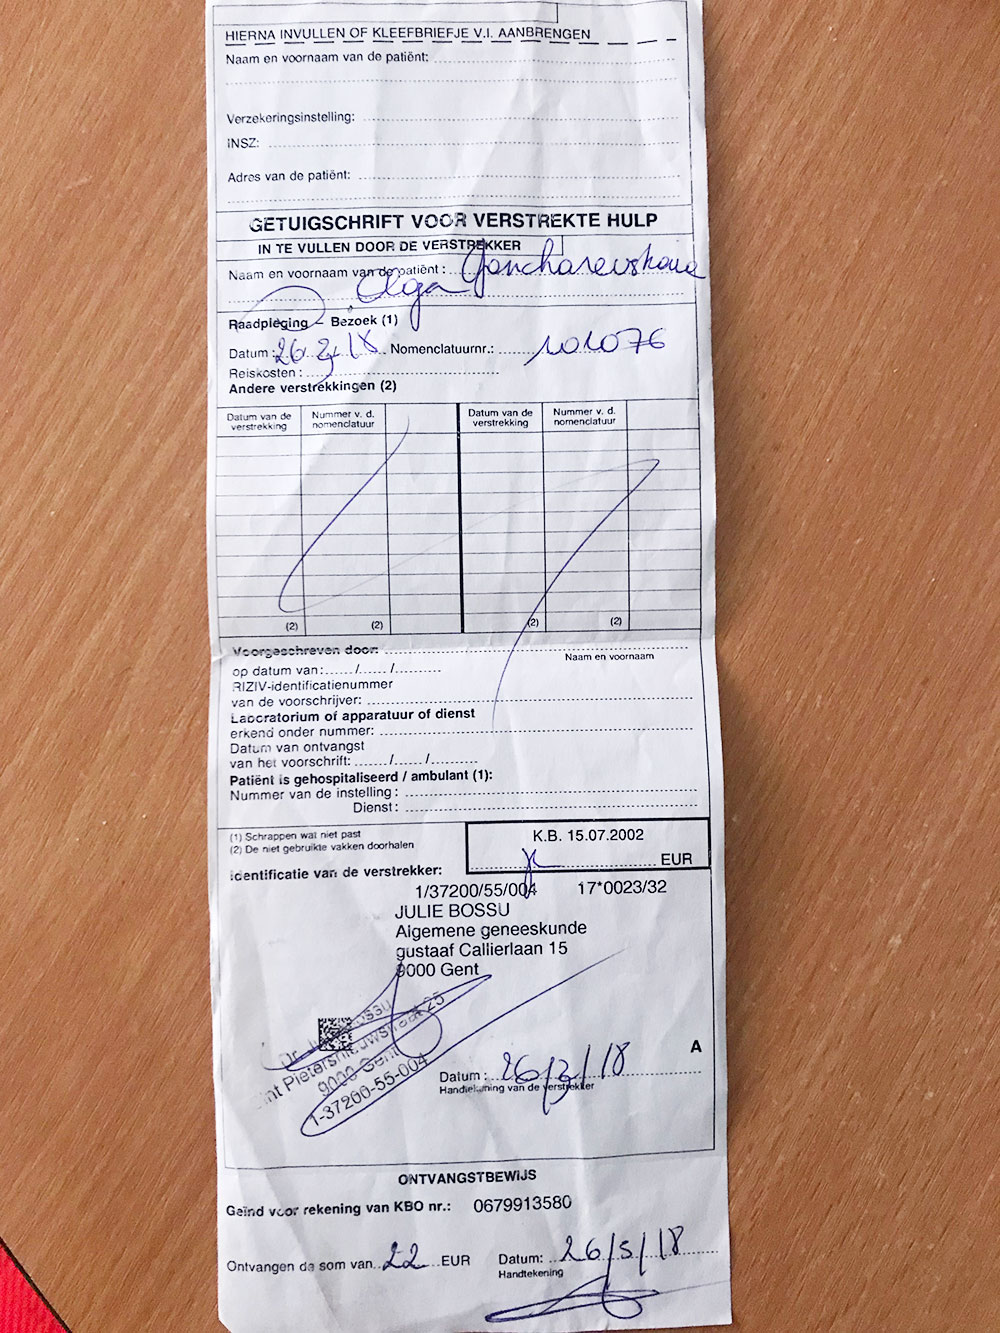 HIERNA INVULLEN OF KLEEFBRIEFJE V.I. AANBRENGEN
Naam en voornaam van de patiënt:
Verzekeringsinstelling:
INSZ:
Adres van de patiënt:
GETUIGSCHRIFT VOOR VERSTREKTE HULP
IN TE VULLEN DOOR DE VERSTREKKER
Naam en voornaam van de patiënt: Goncharevskaia
Olga
Raadpleging – Bezoek (1)
Datum: 26.3.18 Nomenclatuurnr.: 101076
Reiskosten:
Andere verstrekkingen (2)
Datum van de verstrekking Nummer v. d. nomenclatuur Datum van de verstrekking Nummer v. d. nomenclatuur
(2) (2) (2) (2)
Voorgeschreven door:
Naam en voornaam
op datum van: / /
RIZIV-identificatienummer
van de voorschrijver:
Laboratorium of apparatuur of dienst
erkend onder nummer:
Datum van ontvangst
van het voorschrift: / /
Patiënt is gehospitaliseerd / ambulant (1):
Nummer van de instelling:
Dienst:
(1) Schrappen wat niet past
(2) De niet gebruikte vakken doorhalen
K.B. 15.07.2002
EUR
Identificatie van de verstrekker:
1/37200/55/004 17*0023/32
JULIE BOSSU
Algemene geneeskunde
gustaaf Callierlaan 15
9000 Gent
Dr. Bossu
Sint Pietersnieuwstraat 25
9000 Gent
1-37200-55-004
A
Datum: 26/3/18
Handtekening van de verstrekker
ONTVANGSTBEWIJS
Geïnd voor rekening van KBO nr.: 0679913580
Ontvangen de som van 22 EUR Datum: 26/3/18
Handtekening